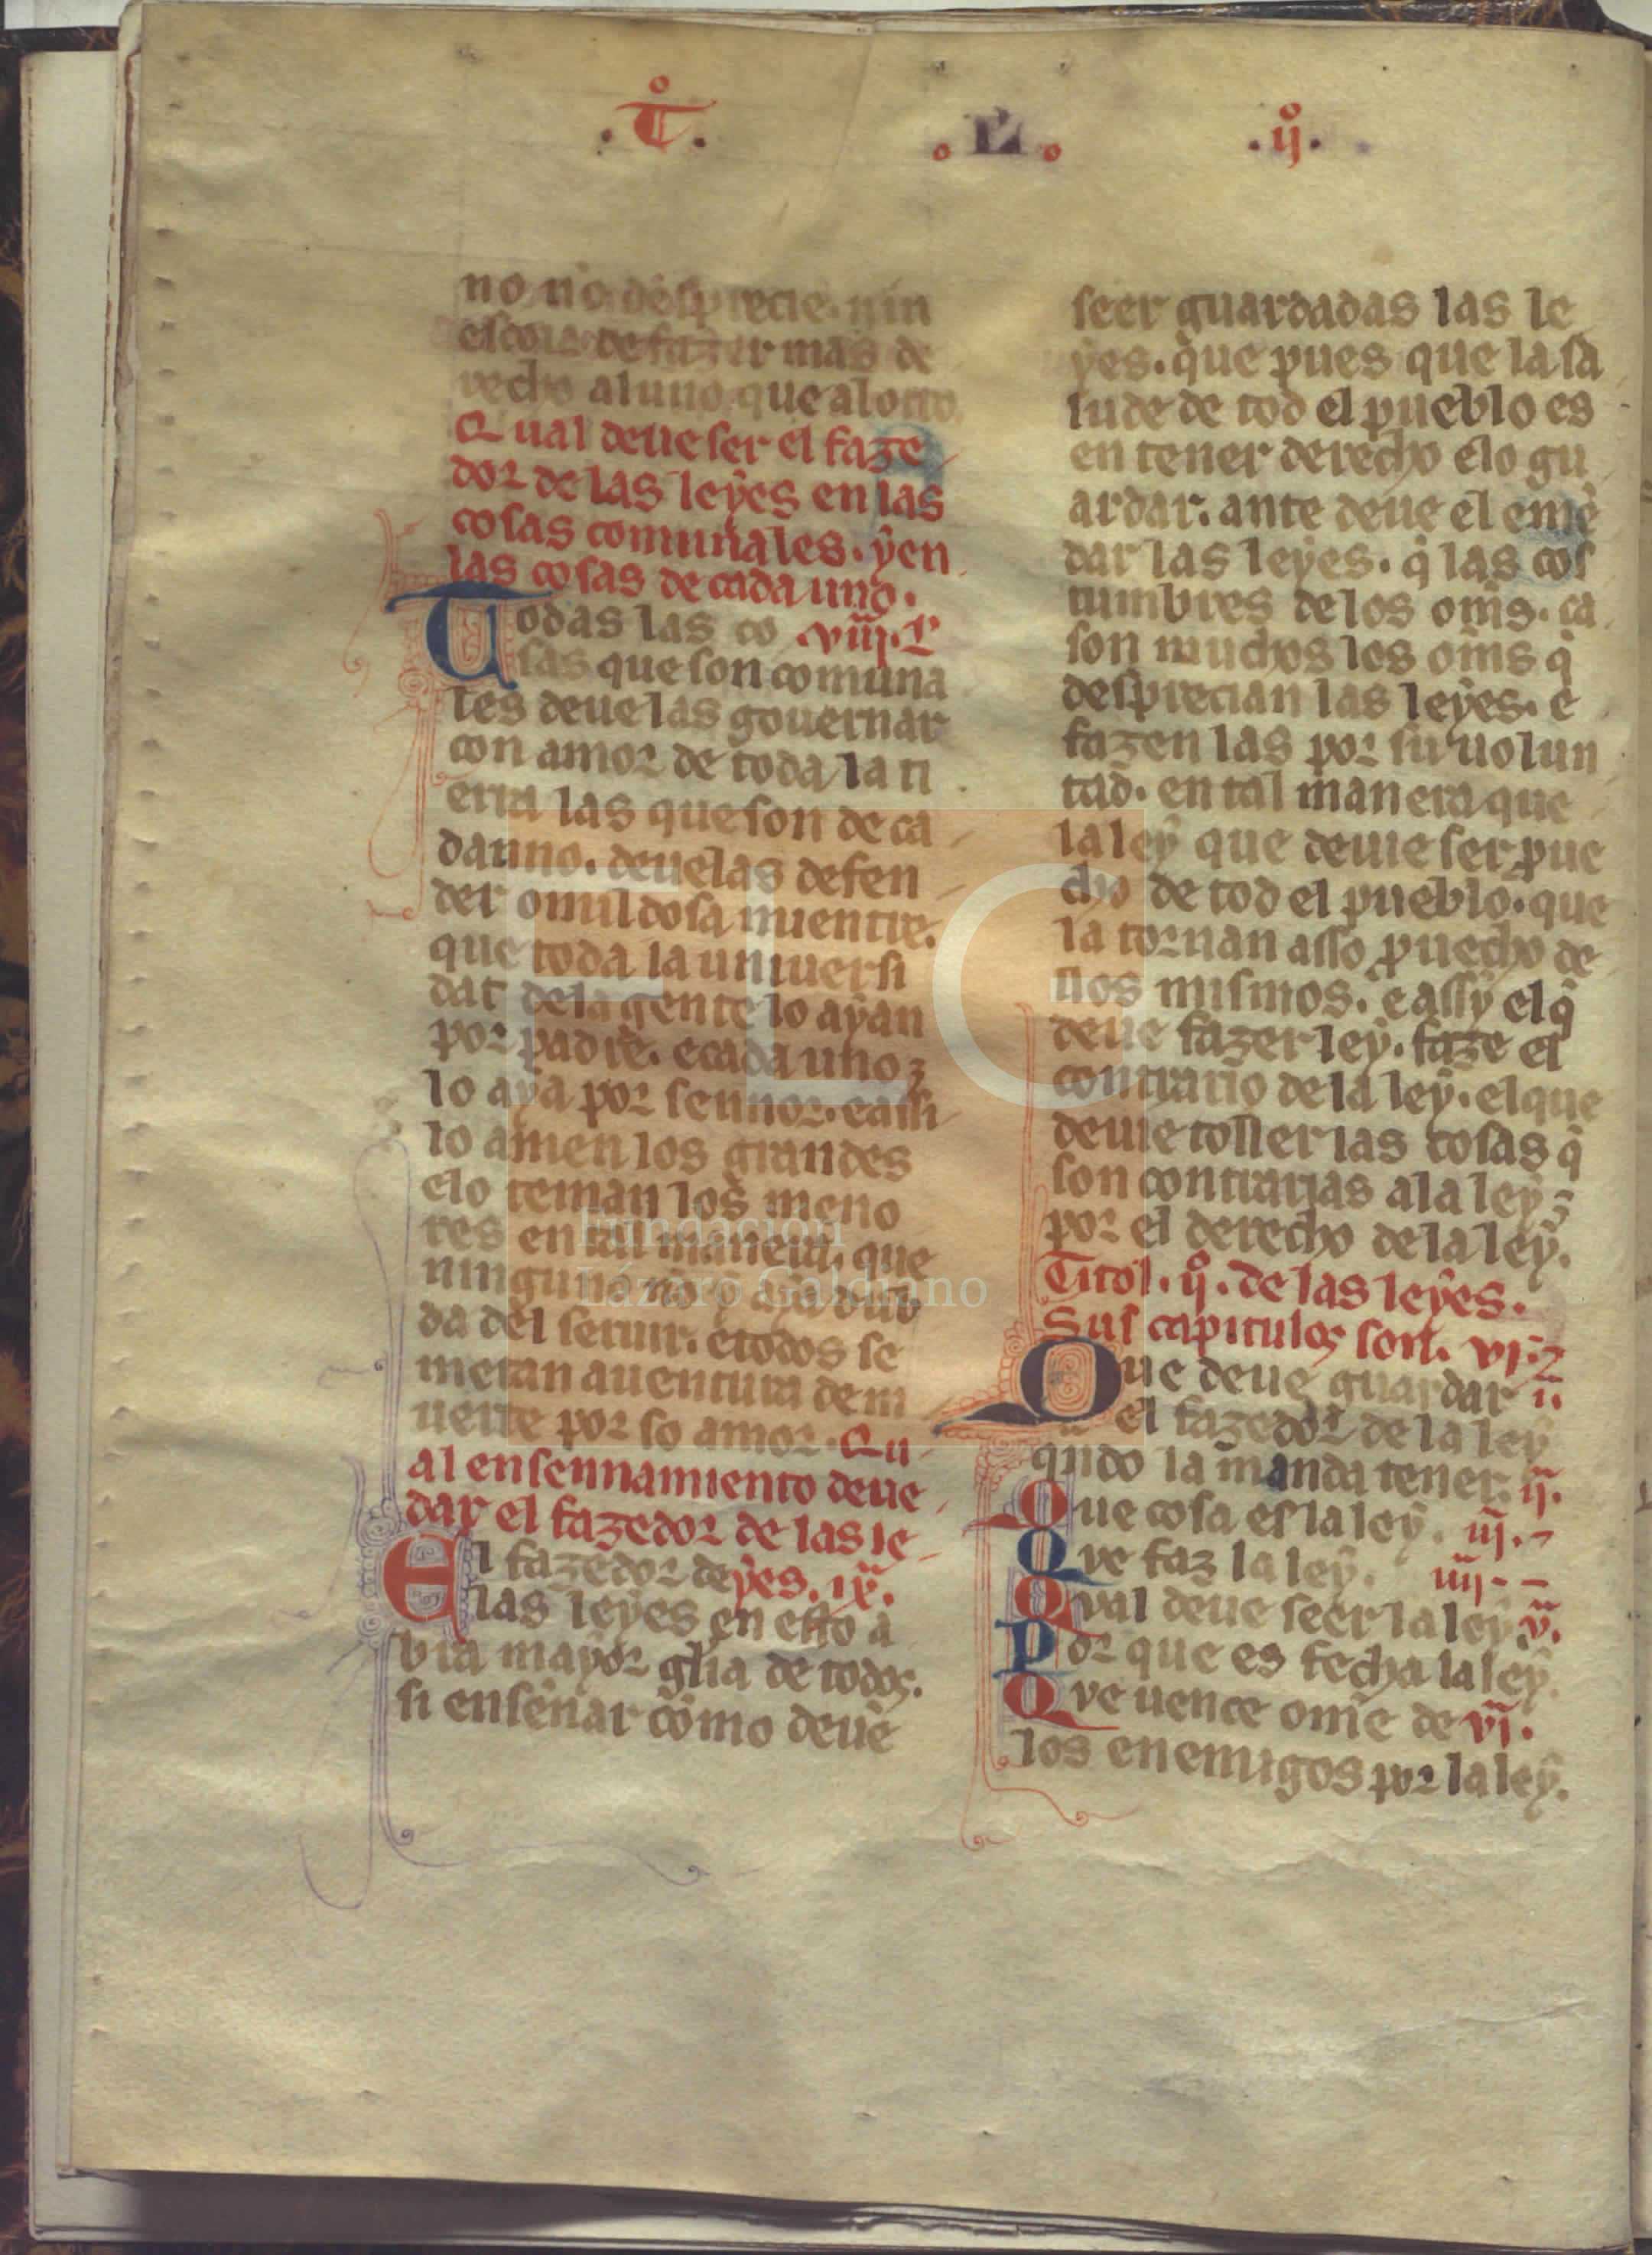 .T̊. .L. .ij̊.
no no desprecie. nin
escoia de fazer mas de
recho al uno que al otro
Qual deue ser el faze
dor de las leyes en las
cosas comunales. y en
las cosas de cada uno.
Todas las co .viij.
sas que son comuna
les deue las gouernar
con amor de toda la ti
erra las que son de ca
dauno. deuelas defen
der omildosa mientre.
que toda la uniuersi
dat de la gente lo ayan
por padre. e cada uno
lo aya por sennor. e assi
lo amen los grandes
e lo teman los meno
res en tal manera. que
ninguno no aya dub
da del seruir. e todos se
metan auentura de m
uerte por so amor. Qu
al ensennamiento deue
dar el fazedor de las le
El fazedor de yes. ix.
las leyes en esto a
bra mayor glia de todos.
si ensenar como deue
seer guardadas las le
yes. que pues que la sa
lude de tod el pueblo es
en tener derecho e lo gu
ardar. ante deue el emē
dar las leyes. q̄ las cos
tumbres de los om̄s. ca
son muchos los om̄s q̄
desprecian las leyes. e
fazen las por su uolun
tad. en tal manera que
la ley que deuie ser pue
cho de tod el pueblo. que
la tornan asso puecho de
llos mismos. e assy el q̄
deue fazer ley. faze el
contrario de la ley. el que
deuie toller las cosas q̄
son contrarias a la ley
por el derecho de la ley.
Titol. ij̊. de las leyes.
Sus capitulos son. vi.
Que deue guardar i.
el fazedor de la ley
qndo la manda tener. ij.
Que cosa es la ley. iij.
Que faz la ley. iiij
Qual deue seer la ley. v.
Por que es fecha la ley.
Que uence ome de vi.
los enemigos por la ley.
Fundación
Lázaro Galdiano
FLG